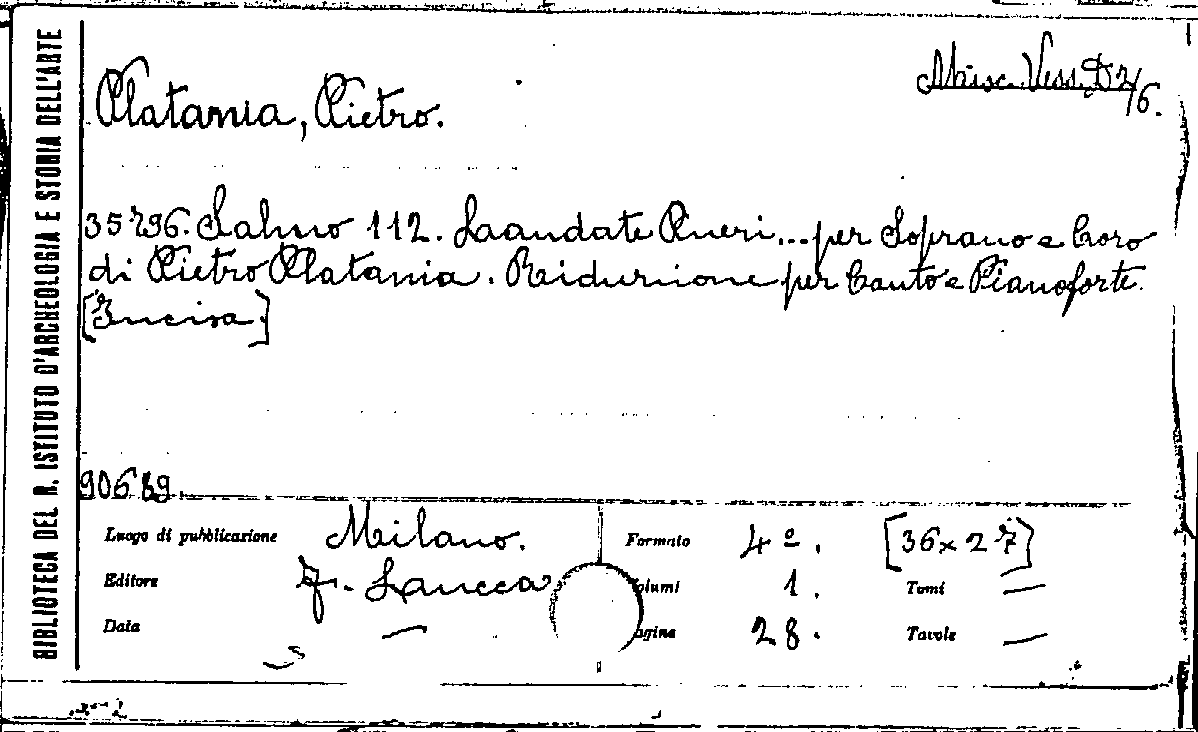 BIBLIOTECA DEL R. ISTITUTO D'ARCHEOLOGIA E STORIA DELL'ARTE
Misc. Vess. D 2/6.
Platania, Pietro.
35796. Salmo 112. Laaudate Pueri... per Soprano e Coro
di Pietro Platania. Riduzione per Canto e Pianoforte.
[Incisa.]
90689.
Luogo di pubblicazione Milano. Formato 4º. [36x27]
Editore F. Lucca Volumi 1. Tomi —
Data — Pagine 28. Tavole —